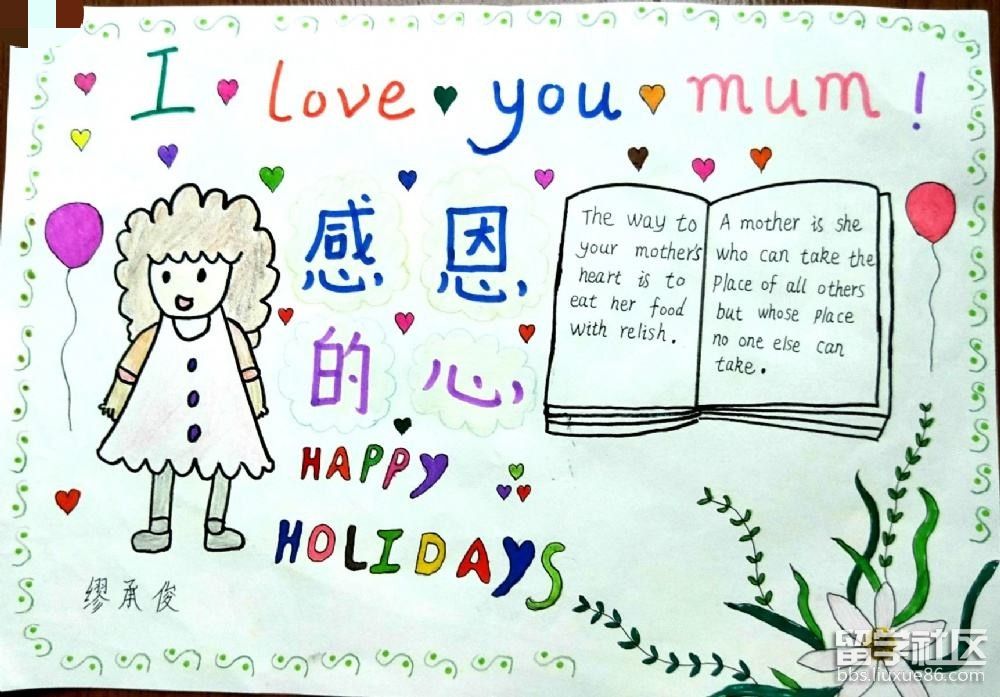 I love you mum!
感恩
的心
The way to
your mother's
heart is to
eat her food
with relish.
A mother is she
who can take the
Place of all others
but whose Place
no one else can
take.
HAPPY
HOLIDAYS
缪承俊
留学社区
bbs.liuxue86.com